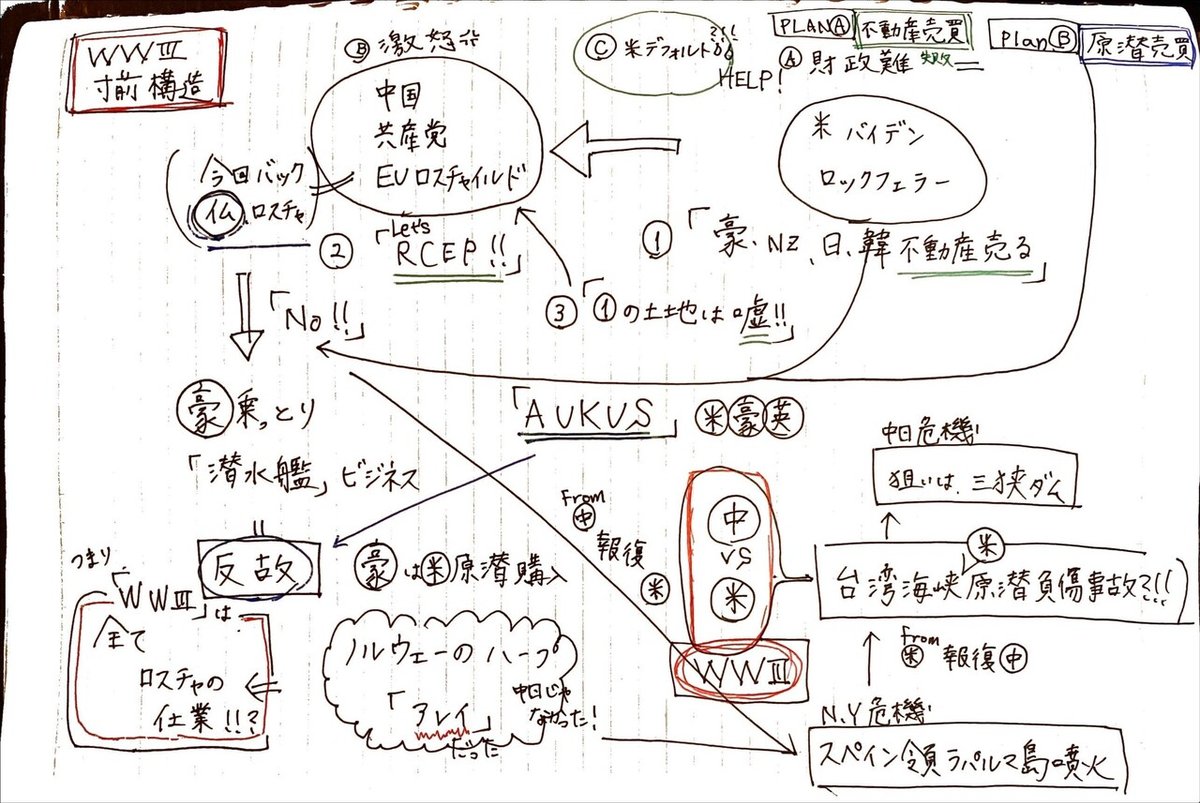 WWⅢ
寸前構造
Ⓑ激怒
中国
共産党
EUロスチャイルド
今回バック
仏ロスチャ
Ⓒ米デフォルト
?!!
HELP!
PLANⒶ 不動産売買
Ⓐ財政難 失敗
PlanⒷ 原潜売買
米バイデン
ロックフェラー
①「豪、NZ、日、韓不動産売る」
②「Let's
RCEP!!」
③「①の土地は嘘!!」
「No!!」
豪乗っとり
「潜水艦」ビジネス
反故
「AUKUS」 米豪英
豪は米原潜購入
つまり、
「WWⅢ」は
全て
ロスチャの
仕業!!?
ノルウェーのハープ
「アレイ」
だった
中日じゃ
なかった!
From
中
報復
米
中
VS
米
WWⅢ
中日危機
狙いは、三狭ダム
米
台湾海峡原潜負傷事故?!!
From
米 報復 中
N.Y危機
スペイン領ラパルマ島噴火